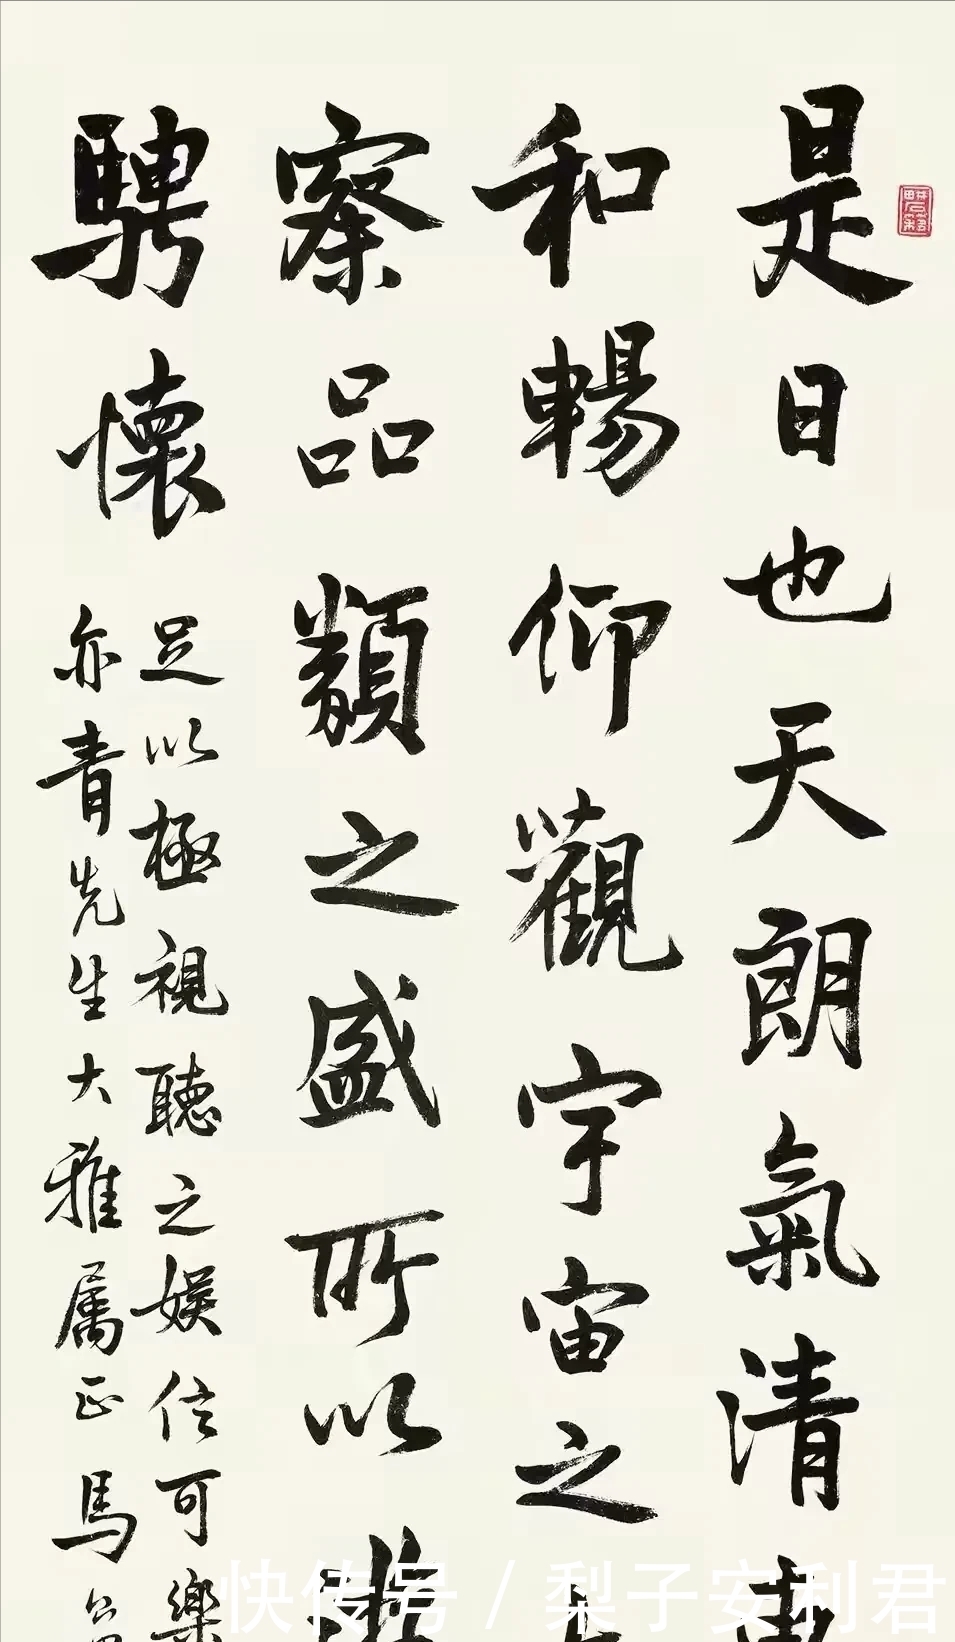 是日也天朗氣清
和暢仰觀宇宙之
察品類之盛所以遊
騁懷
足以極視聽之娛信可樂
亦青先生大雅属正 馬公
快传号 / 梨子安利君